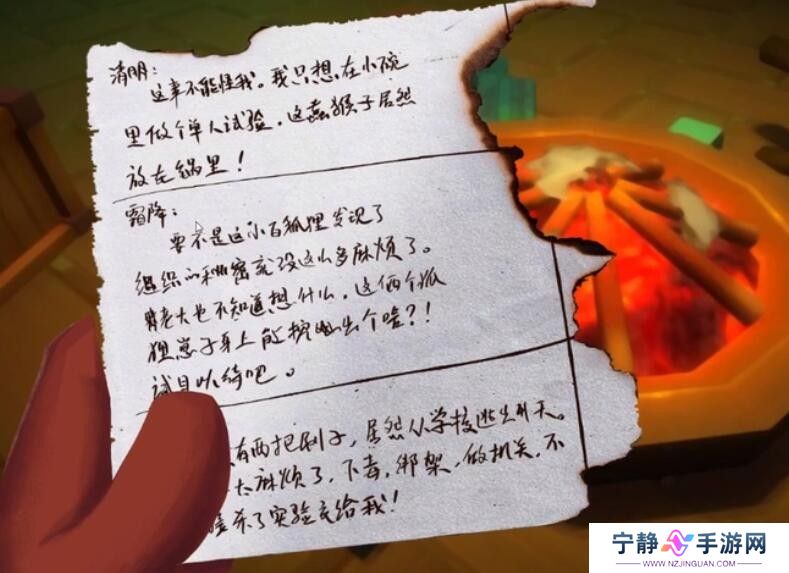 清明：
这事不能怪我。我只想在小碗
里做个单人试验，这蠢猴子居然
放在锅里！
霜降：
要不是这小百狐狸发现了
组织的秘密充没这么多麻烦了。
胖老大也不知道想什么，这俩个狐
狸崽子身上能挖出个啥？！
试目以待吧。
有两把刷子，居然从学校逃出升天。
太麻烦了，下毒，绑架，做机关，不
杀了实验交给我！
宁静手游网
WWW.NZJINGUAN.COM